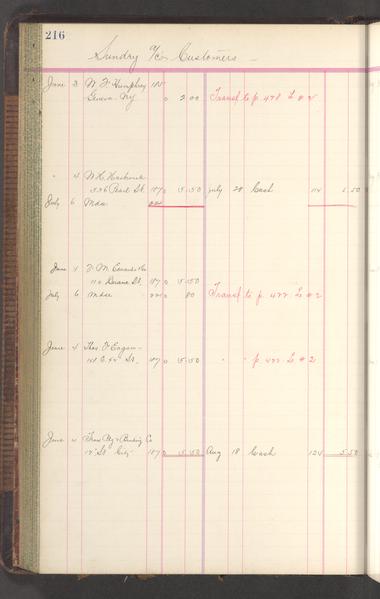 216
Sundry a/c Customers
June 3 W. F. Humphrey 185
Geneva N.Y. 0 2 00 Transf. to p. 478 L # 2
" 4 W. H.
536 Pearl St. 187 0 5.50 July 28 Cash 114 5.50
July 6 Mdse
June 4
110 Duane St. 187 0 5.50
July 6 Mdse 80 Transf. to p. 477 L # 2
June 4 Thos. F. Eagan
St. 187 0 5.50 " " p. 477 L # 2
June 4 Co
St. City 187 0 5.50 Aug 18 Cash 124 5.50